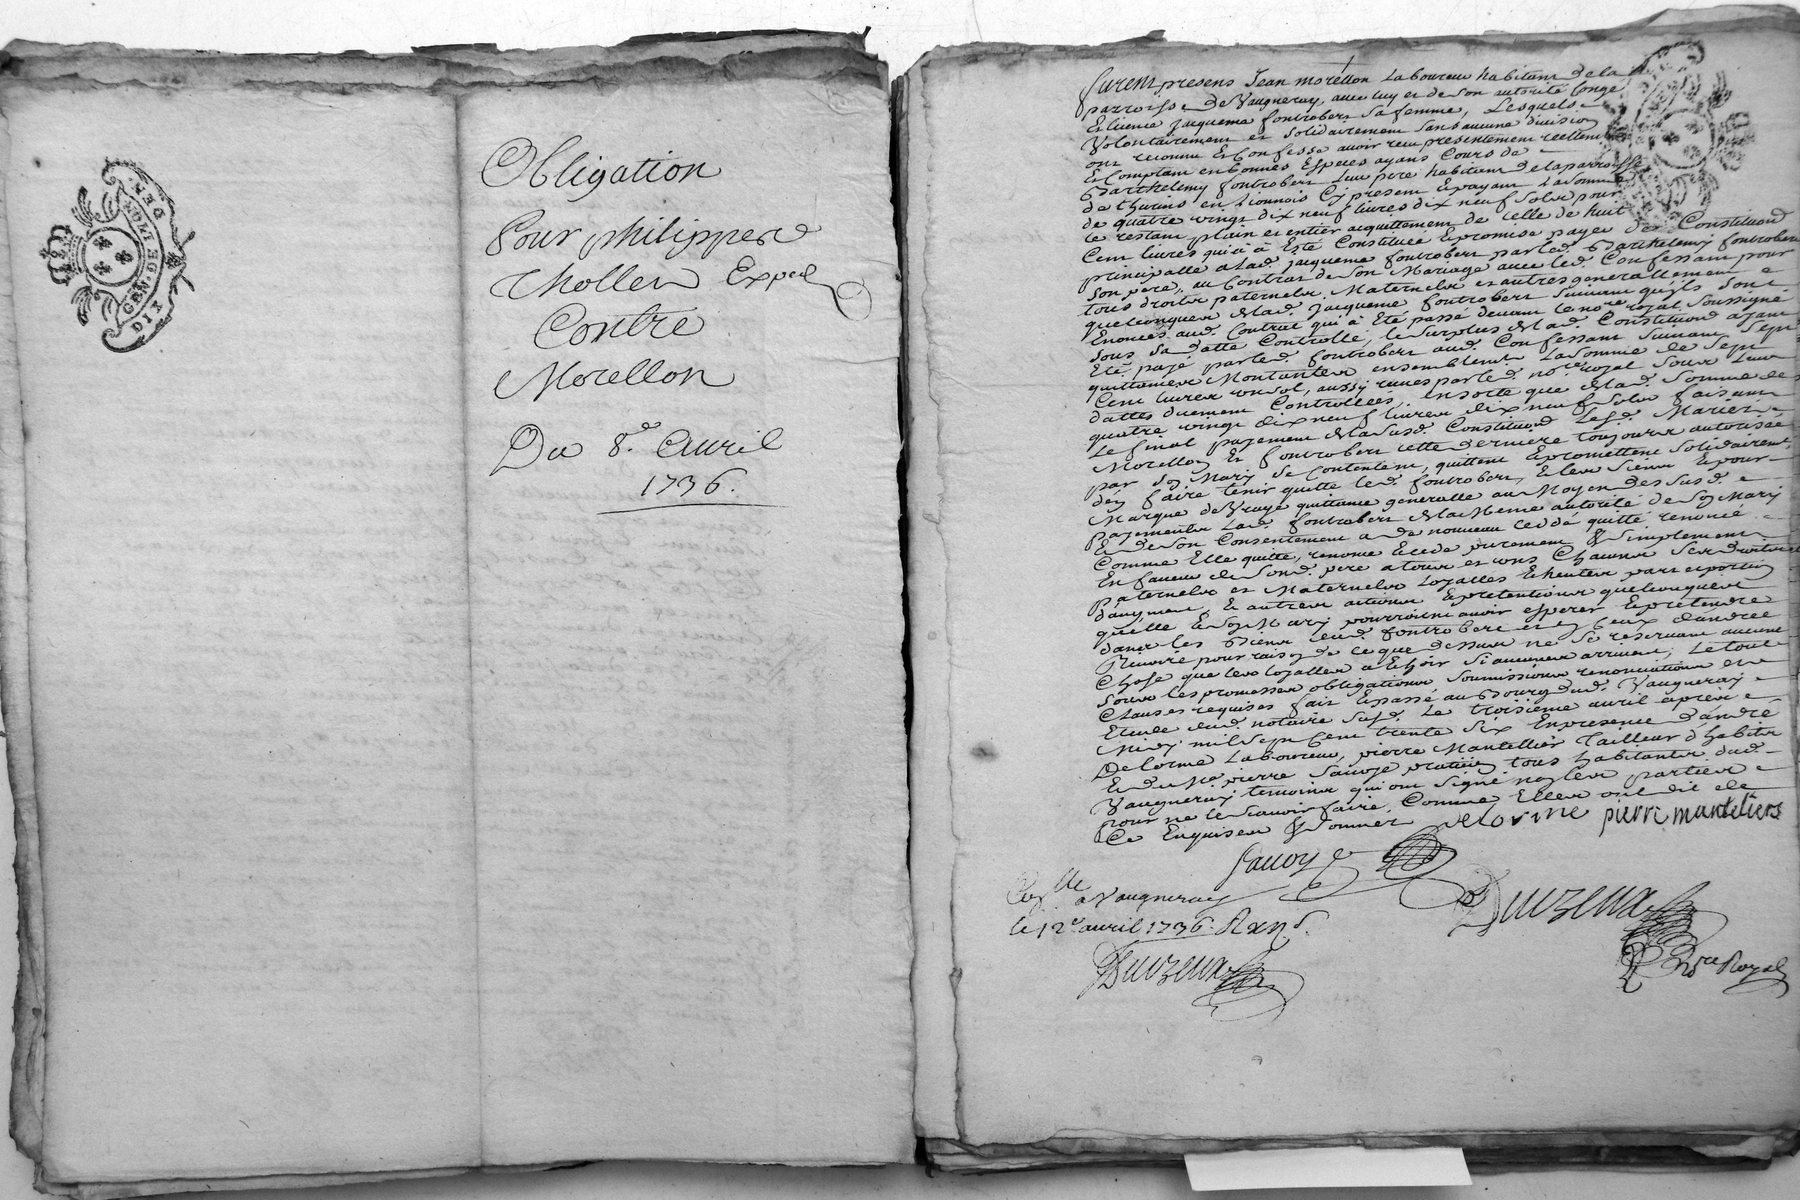 GEN. DE LION
MOY. PAP.
DIX D
Obligation
Pour philippe
thollet Exped
Contre
Morellon
Du 8e. Avril
1736.
furent presens Jean morellon Laboureur habitant de la
parroisse de Vaugneray, avec luy et de son autorité Congé
Et licence jacqueme fontrobert sa femme, Lesquels
Volontairement et solidairement sans aucune division
ont reconnu Et Confessé avoir reçu presentement reellement
Et Comptant en bonnes Especes ayans Cours de
Barthelemy fontrobert Leur pere habitant de la parroisse
de thurins en Lionnois Cy present Et payant La somme
de quatre vingt dix neuf livres dix neuf sols pour
le restant plein et entier acquittement de celle de huit
Cent livres qui a Esté Constituée Et promise payer de Constitution
principalle a lad. jacqueme fontrobert par led. Barthelemy fontrobert
son pere, au Contrat de son Mariage avec led. Confessant pour
tous droits paternels Maternels et autres generallement
quelconques de lad. jacqueme fontrobert suivant qu'ils sont
Enoncés aud. Contrat qui a Eté passé devant le nore royal soussigné
sous sa datte Controllé, le surplus de lad. Constitution ayant
Eté payé par led. fontrobert aud. Confessant suivant sept
quittances Montantes ensemblement La somme de sept
Cent livres un sol, aussy reçues par led. nore royal sous leurs
dattes duement Controllées, En sorte que de lad. somme de
quatre vingt dix neuf livres dix neuf sols faisant
Le final payement de la susd. Constitution Lesd. Mariés
Morellon Et fontrobert cette derniere toujours autorisée
par son Mary se contentent, quittent Et promettent solidairement
d'en faire tenir quitte led. fontrobert, Et les siens Et pour
Marque de Vraye quittance generalle au Moyen des susd.
payements Lad. fontrobert de la Meme autorité de son Mary
Et de son Consentement a de nouveau Ceddé quitté renoncé
Comme Elle quitte, renonce Et cede purement & simplement
En faveur de sond. pere a tous et uns Chacuns ses droits
paternels et Maternels Loyalles Echeutes part et portion
d'augment Et autres actions Et pretentions quelconques
qu'elle Et son Mary pourroient avoir esperer Et pretendre
dans les Biens dud. fontrobert et en Ceux d'andrée
pour raison de ce que dessus ne se reservant aucune
Chose que les loyalles a Echoir si aucunes arrivent, Le tout
sous les promesses obligations soumissions renonciations et
Clauses requises fait Et passé au Bourg dud. Vaugneray
Etude dud. notaire susd. Le troisième avril après
Midy mil sept Cent trente six En presence d'andré
Delorme Laboureur, pierre Mantellier Tailleur d'habits
Et de Me. pierre Sauvoye praticien tous habitants dud.
Vaugneray temoins qui ont signé non les parties
pour ne le scavoir faire, Comme Elles ont dit de
Ce Enquises & sommées delorme pierre manteliers
Sauoye
Conlle a Vaugneray
le 12e avril 1736. R
Duvzeux
Duvzeux
Nore Royal